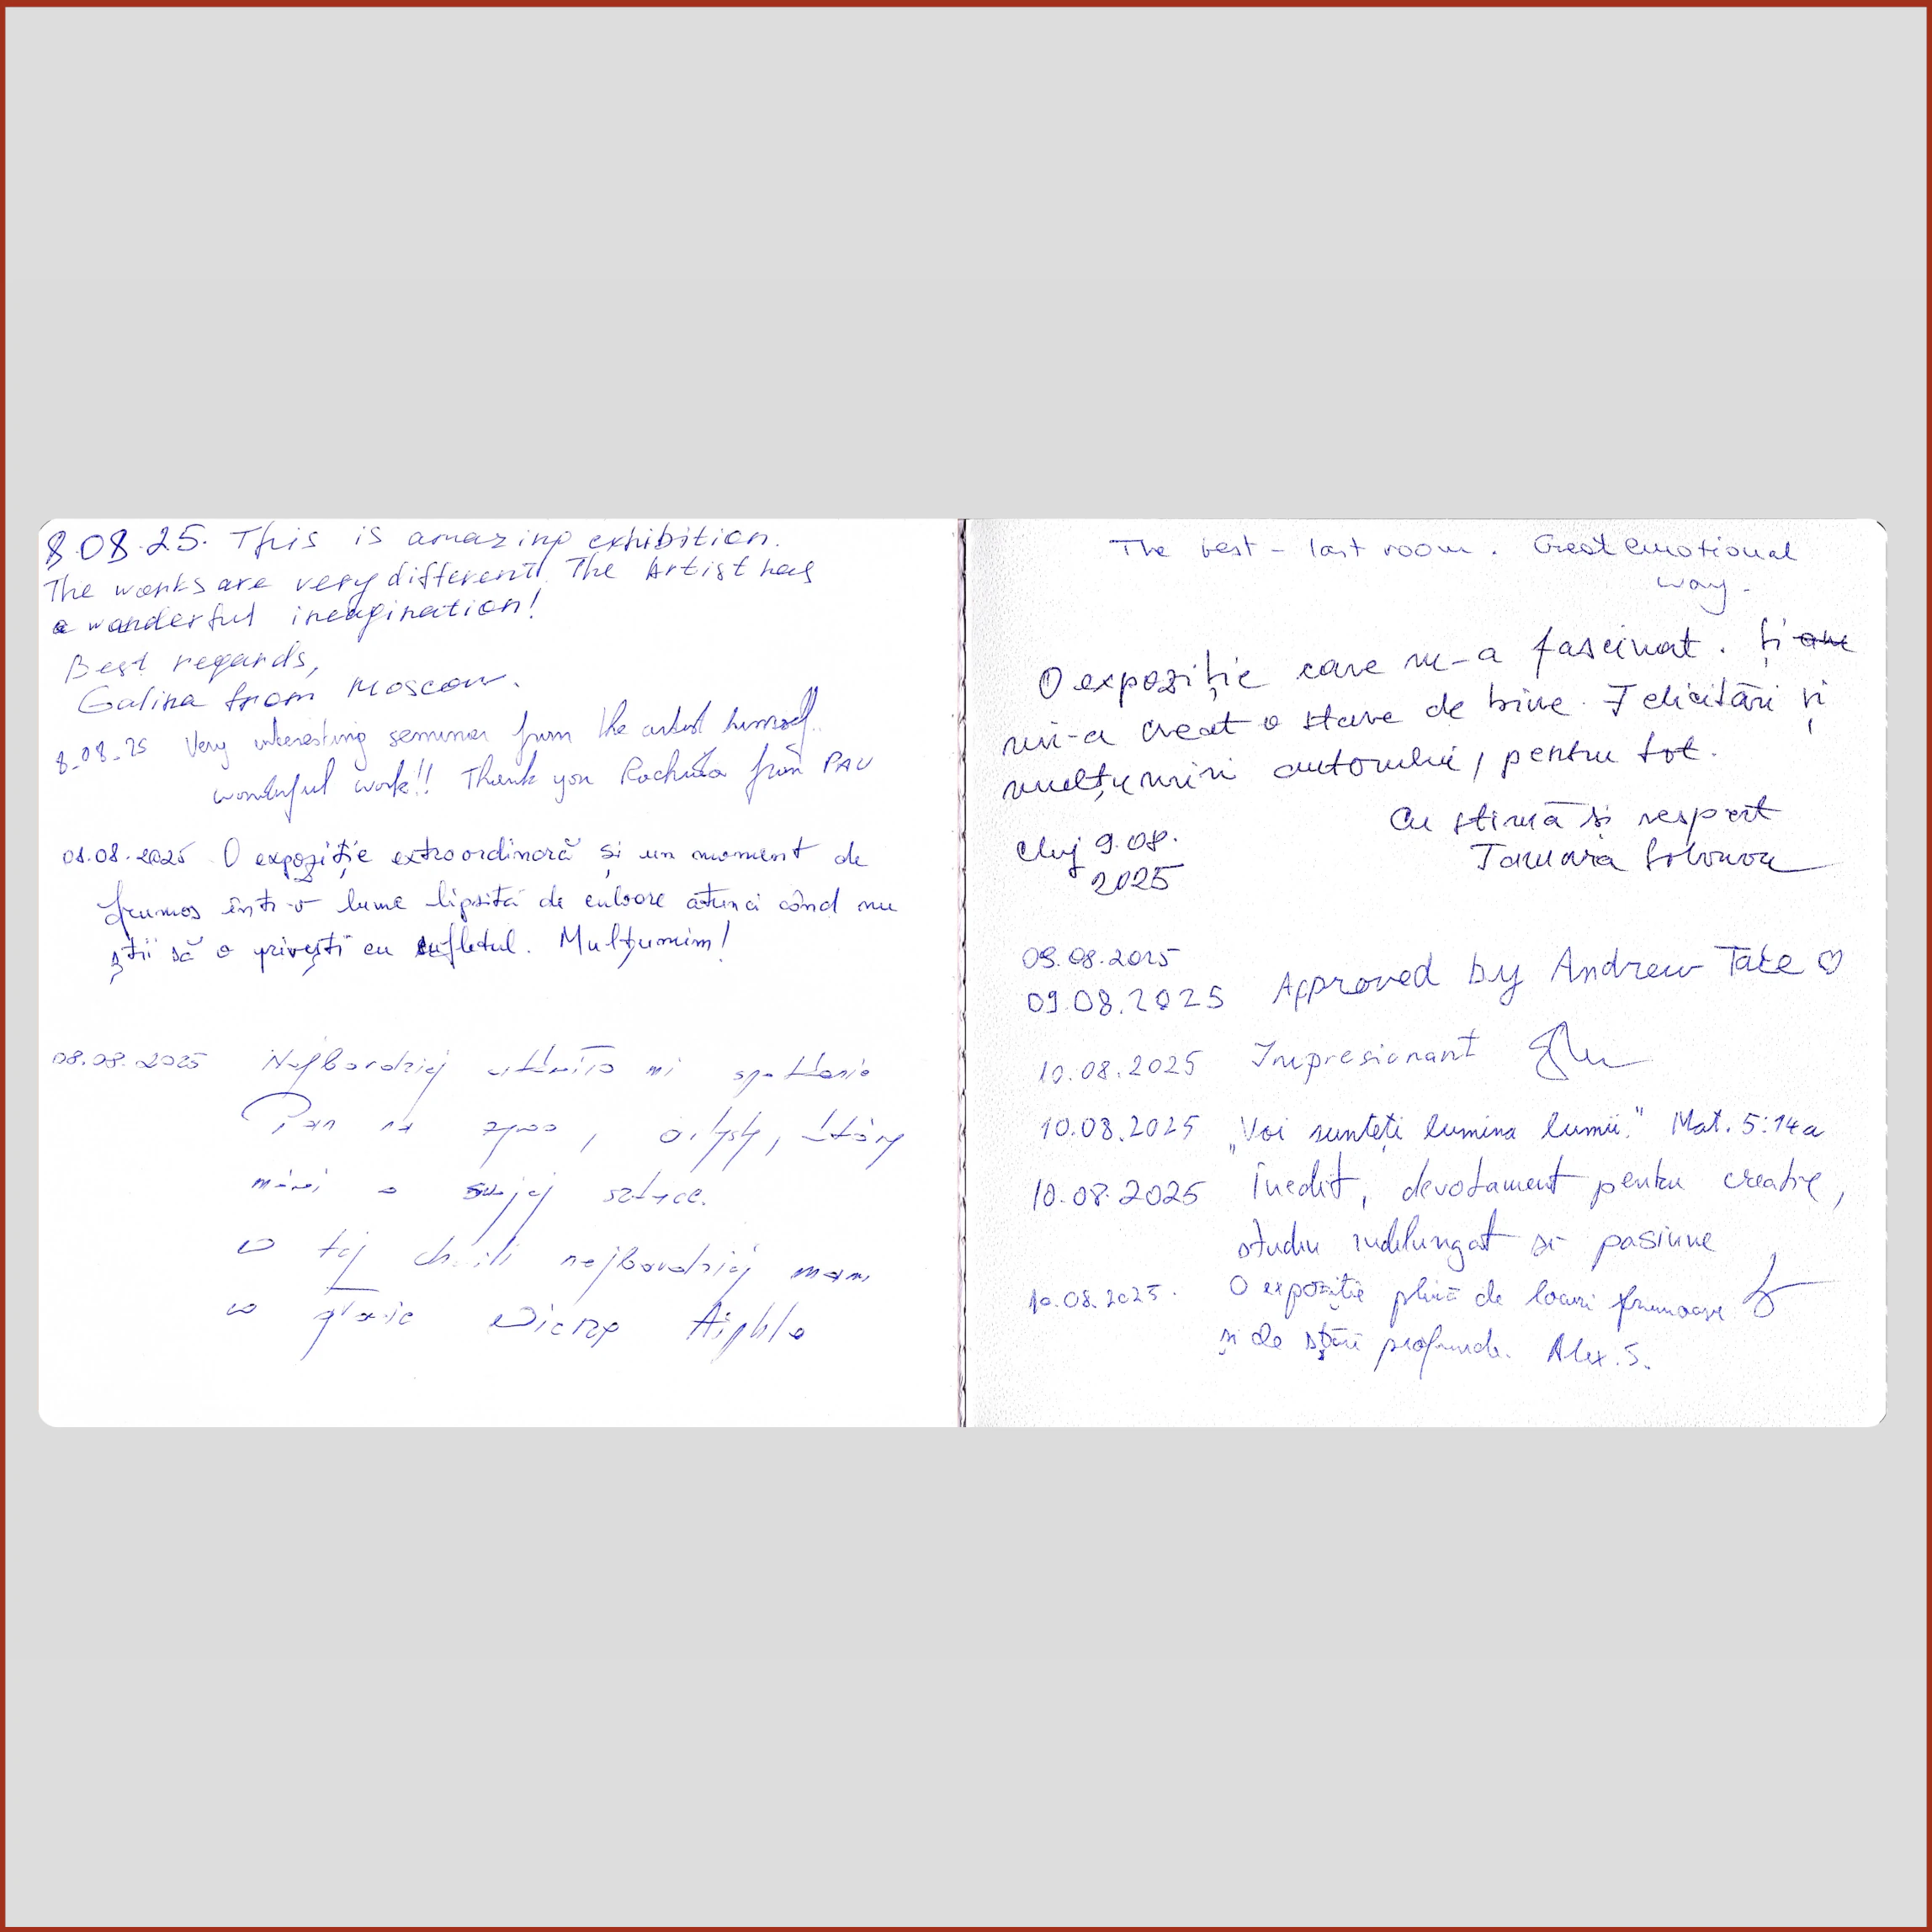 8.08.25. This is amazing exhibition.
The works are very different. The Artist has
a wonderful imagination!
Best regards,
Galina from Moscow.
8-08-25 Very interesting seminar from the artist himself.
wonderful work!! Thank you from PAU
08.08.2025 O expoziție extraordinară și un moment de
frumos într-o lume lipsită de culoare atunci când nu
știi să o privești cu sufletul. Mulțumim!
08.08.2025 Najbardziej utkwiło mi spotkanie
Pan na żywo, artysty, który
mówi o swojej sztuce.
W tej chwili najbardziej mam
w głowie
The best - last room. Great emotional
way.
O expoziție care m-a fascinat. Și am
mi-a creat o stare de bine. Felicitări și
mulțumiri autorului, pentru tot.
Cu stimă și respect
Cluj 9.08.
2025
09.08.2025
09.08.2025 Approved by Andrew Tate ♡
10.08.2025 Impresionant
10.08.2025 „Voi sunteți lumina lumii." Mat. 5:14a
10.08.2025 Inedit, devotament pentru creație,
studiu indelungat si pasiune
10.08.2025. O expoziție plină de locuri frumoase
și de stări profunde. Alex. S.